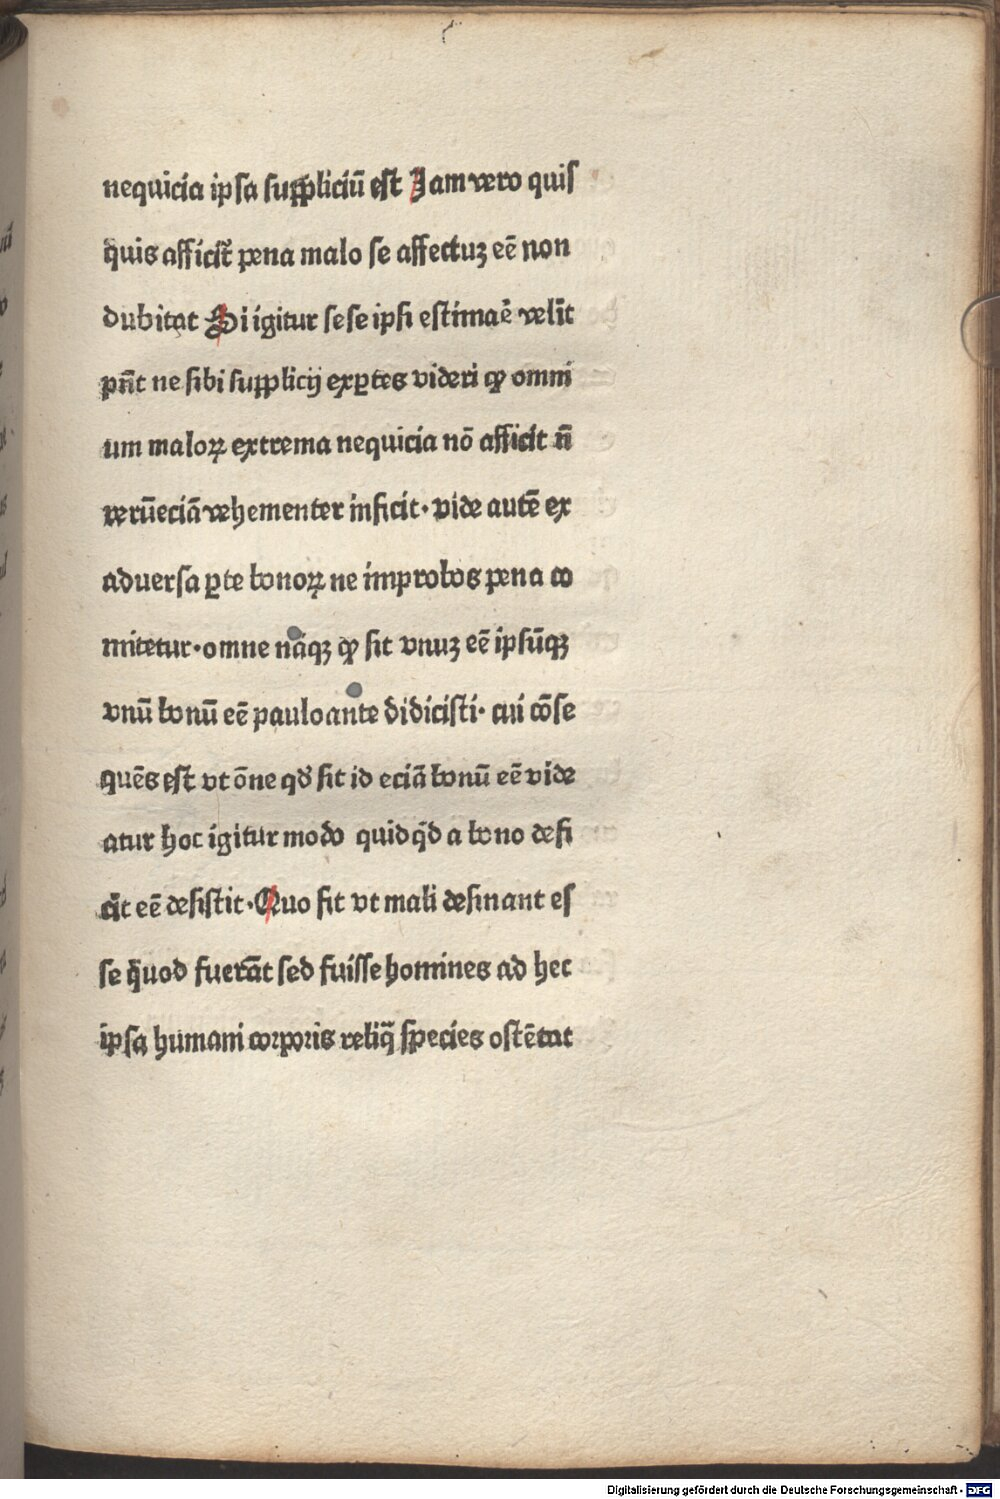 nequicia ipsa suppliciū est Jam vero quis
quis afficit̄ pena malo se affectuȝ eē non
dubitat Si igitur sese ipsi estimaē velīt
pn̄t ne sibi supplicij exꝑtes videri ꝙ omni
um maloꝝ extrema nequicia nō afficit n̄
verūeciā vehementer inficit· vide autē ex
aduersa ꝑte bonoꝝ ne improbos pena co
mitetur· omne nāqȝ ꝙ sit vnuȝ eē ipsūqȝ
vnū bonū eē pauloante didicisti· cui cōse
quēs est vt ōne qd̄ sit id eciā bonū eē vide
atur hoc igitur modo quidq̇d a bono defi
cit eē desistit· Quo fit vt mali desinant es
se quod fuerāt sed fuisse homines ad hec
ipsa humani corporis reliq̄ species ostētat
Digitalisierung gefördert durch die Deutsche Forschungsgemeinschaft - DFG